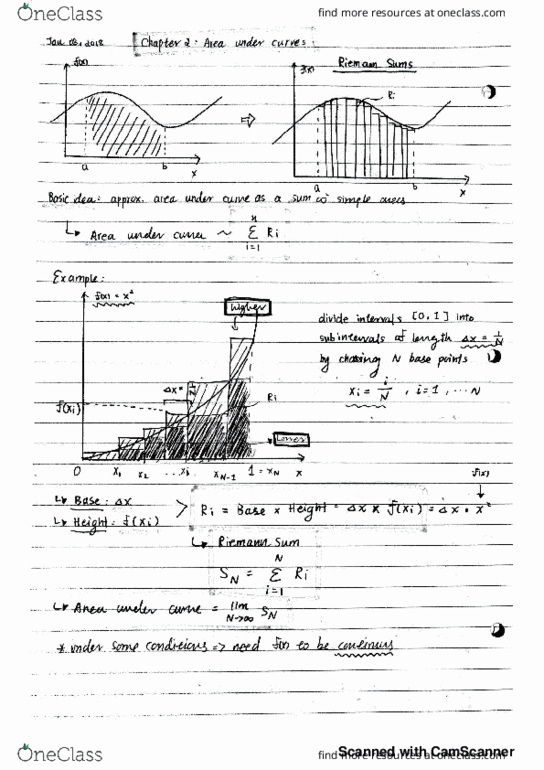 OneClass
find more resources at oneclass.com
Jan 08, 2018
Chapter 2: Area under curves:
f(x)
a
b
x
Riemann Sums
f(x)
Ri
a
b
x
Basic idea: approx. area under curve as a sum of simple ones
↳ Area under curve ~ n Σ i=1 Ri
Example:
f(x) = x²
higher
divide intervals [0, 1] into
subintervals of length Δx = 1/N
by choosing N base points
xi = i/N , i=1, ... N
Δx = 1/N
Ri
f(xi)
Lower
0 x1 x2 ...xi xN-1 1 = xN x
f(x)
↳ Base: Δx
↳ Height: f(xi)
> Ri = Base x Height = Δx x f(xi) = Δx • x²
↳ Riemann Sum
SN = N Σ i=1 Ri
↳ Area under curve = lim N→∞ SN
* under some conditions => need f(x) to be continuus
Scanned with CamScanner
OneClass
find more resources at oneclass.com